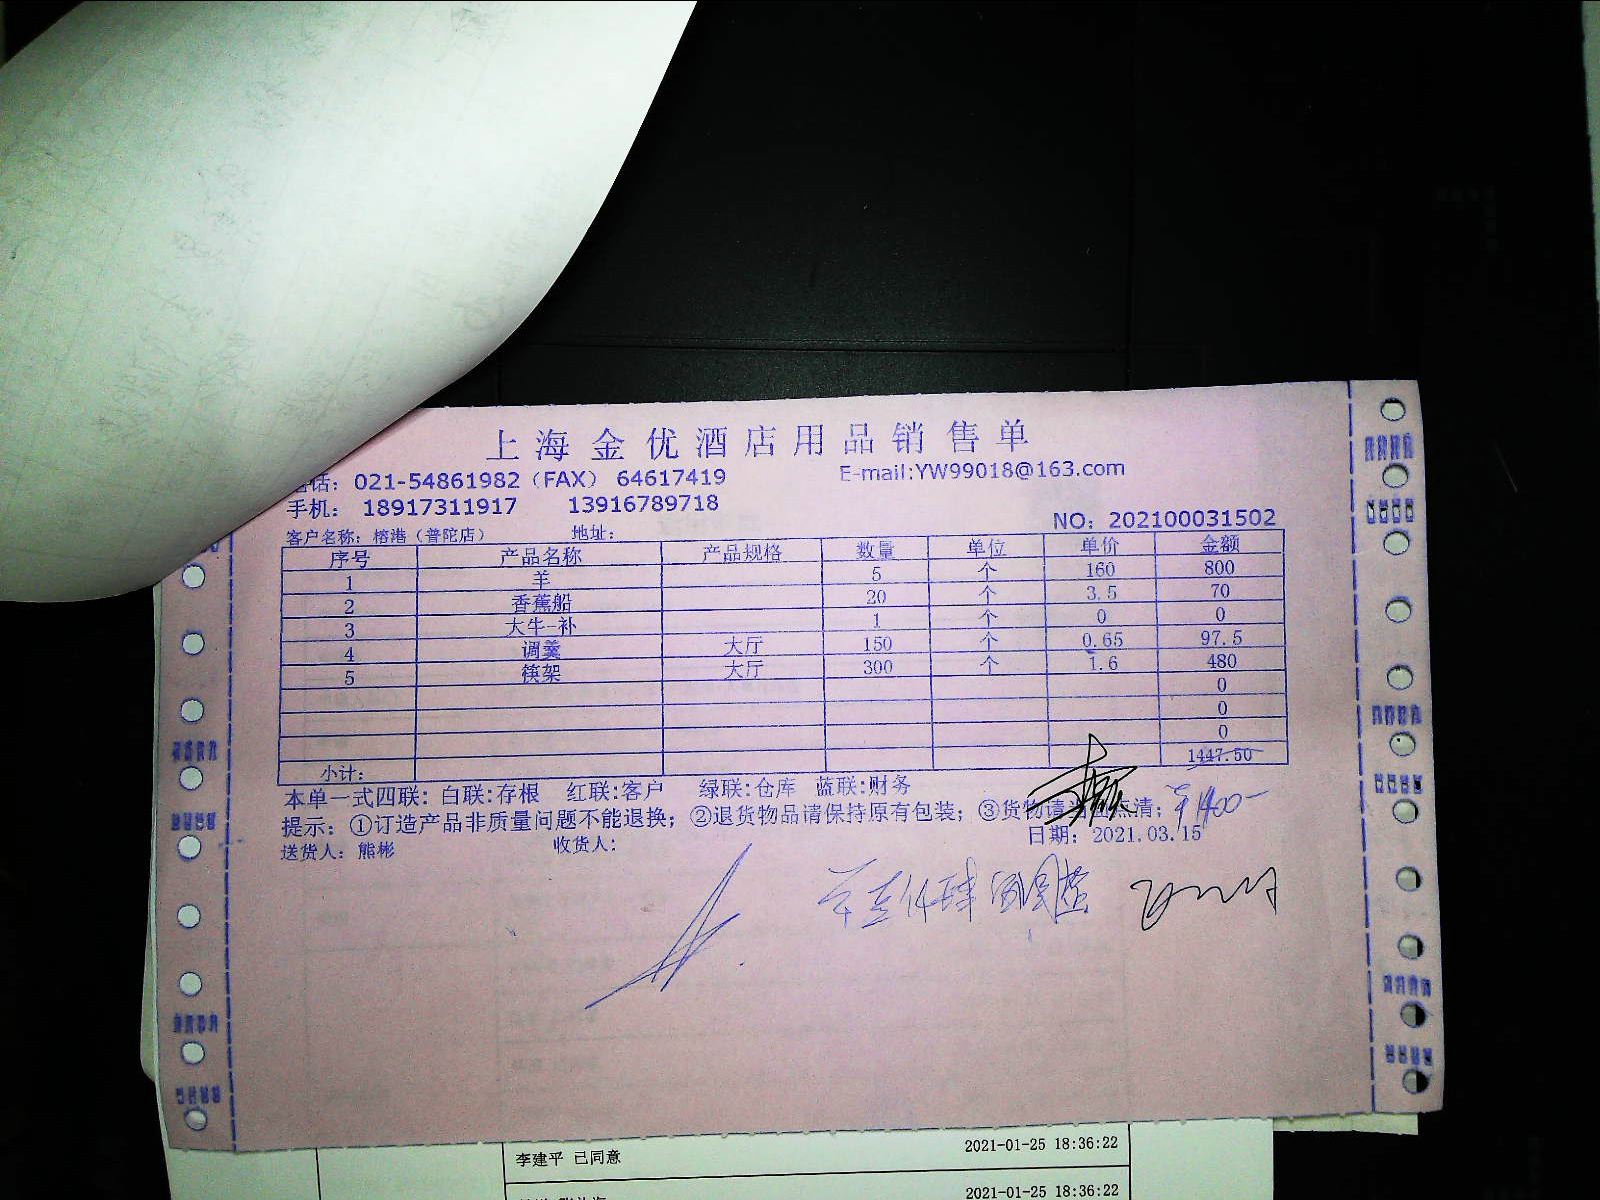 上海金优酒店用品销售单
话：021-54861982（FAX） 64617419 E-mail:YW99018@163.com
手机： 18917311917 13916789718
NO：202100031502
客户名称：榕港（普陀店） 地址：
序号 产品名称 产品规格 数量 单位 单价 金额
1 羊 5 个 160 800
2 香蕉船 20 个 3.5 70
3 大牛-补 1 个 0 0
4 调羹 大厅 150 个 0.65 97.5
5 筷架 大厅 300 个 1.6 480
0
0
0
小计： 1447.50
本单一式四联：白联:存根 红联:客户 绿联:仓库 蓝联:财务
提示：①订造产品非质量问题不能退换；②退货物品请保持原有包装；③货物请当面点清；
¥1400-
送货人：熊彬 收货人： 日期：2021.03.15
李建平 已同意 2021-01-25 18:36:22
2021-01-25 18:36:22